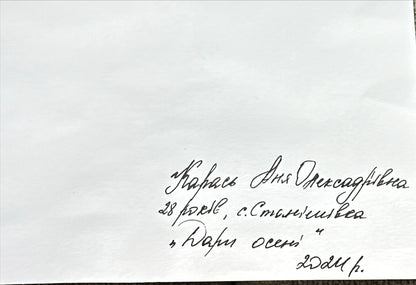 Карась Аня Олександрівна
28 років, с.Станішівка
„Дари осені"
2024 р.